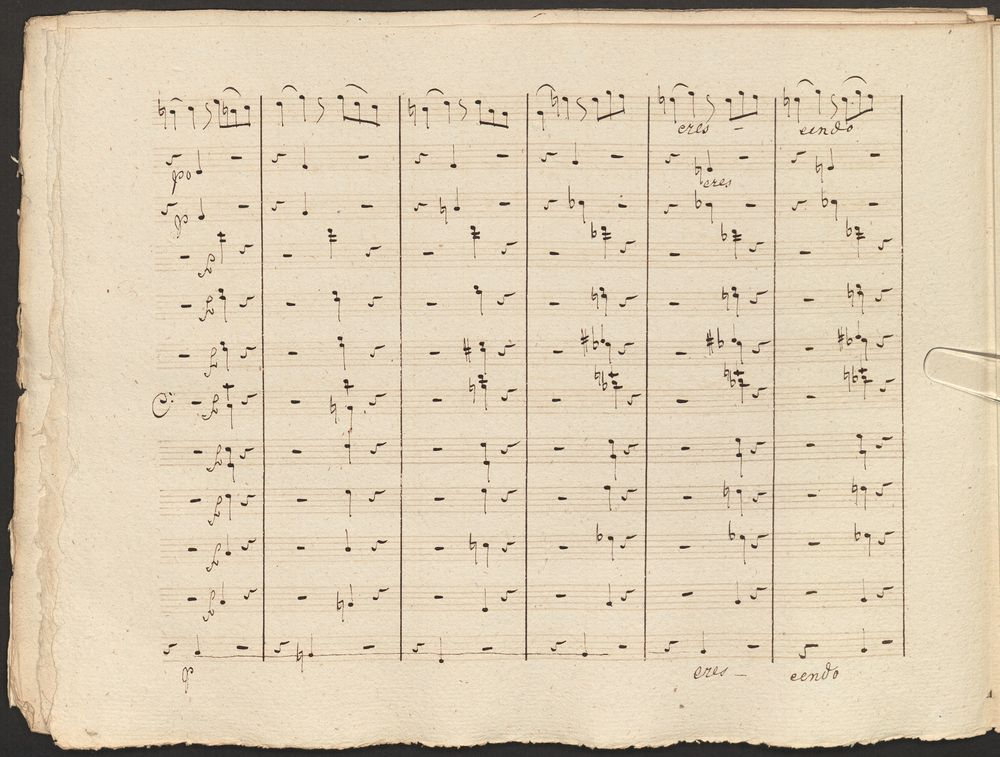 cres - cendo
po
cres
p
p
p
p
C:
p
p
p
p
p
p
cres - cendo